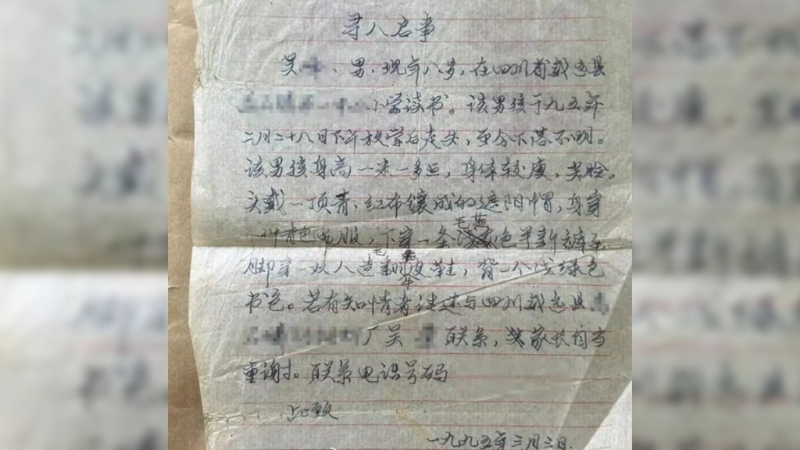 寻人启事
吴 、男、现年八岁，在四川省越西县
小学读书。该男孩于九五年
二月二十八日下午放学后走失，至今下落不明。
该男孩身高一米一多，身体较瘦，尖脸，
头戴一顶青、红布镶成的遮阳帽，身穿
一件青色 服，下穿一条 色 新裤子，
脚穿一双人造 皮鞋，背一个浅绿色
书包。若有知情者请速与四川越西县
厂吴 联系，家长自当
重谢。联系电话号码
此致
一九九五年三月三日.